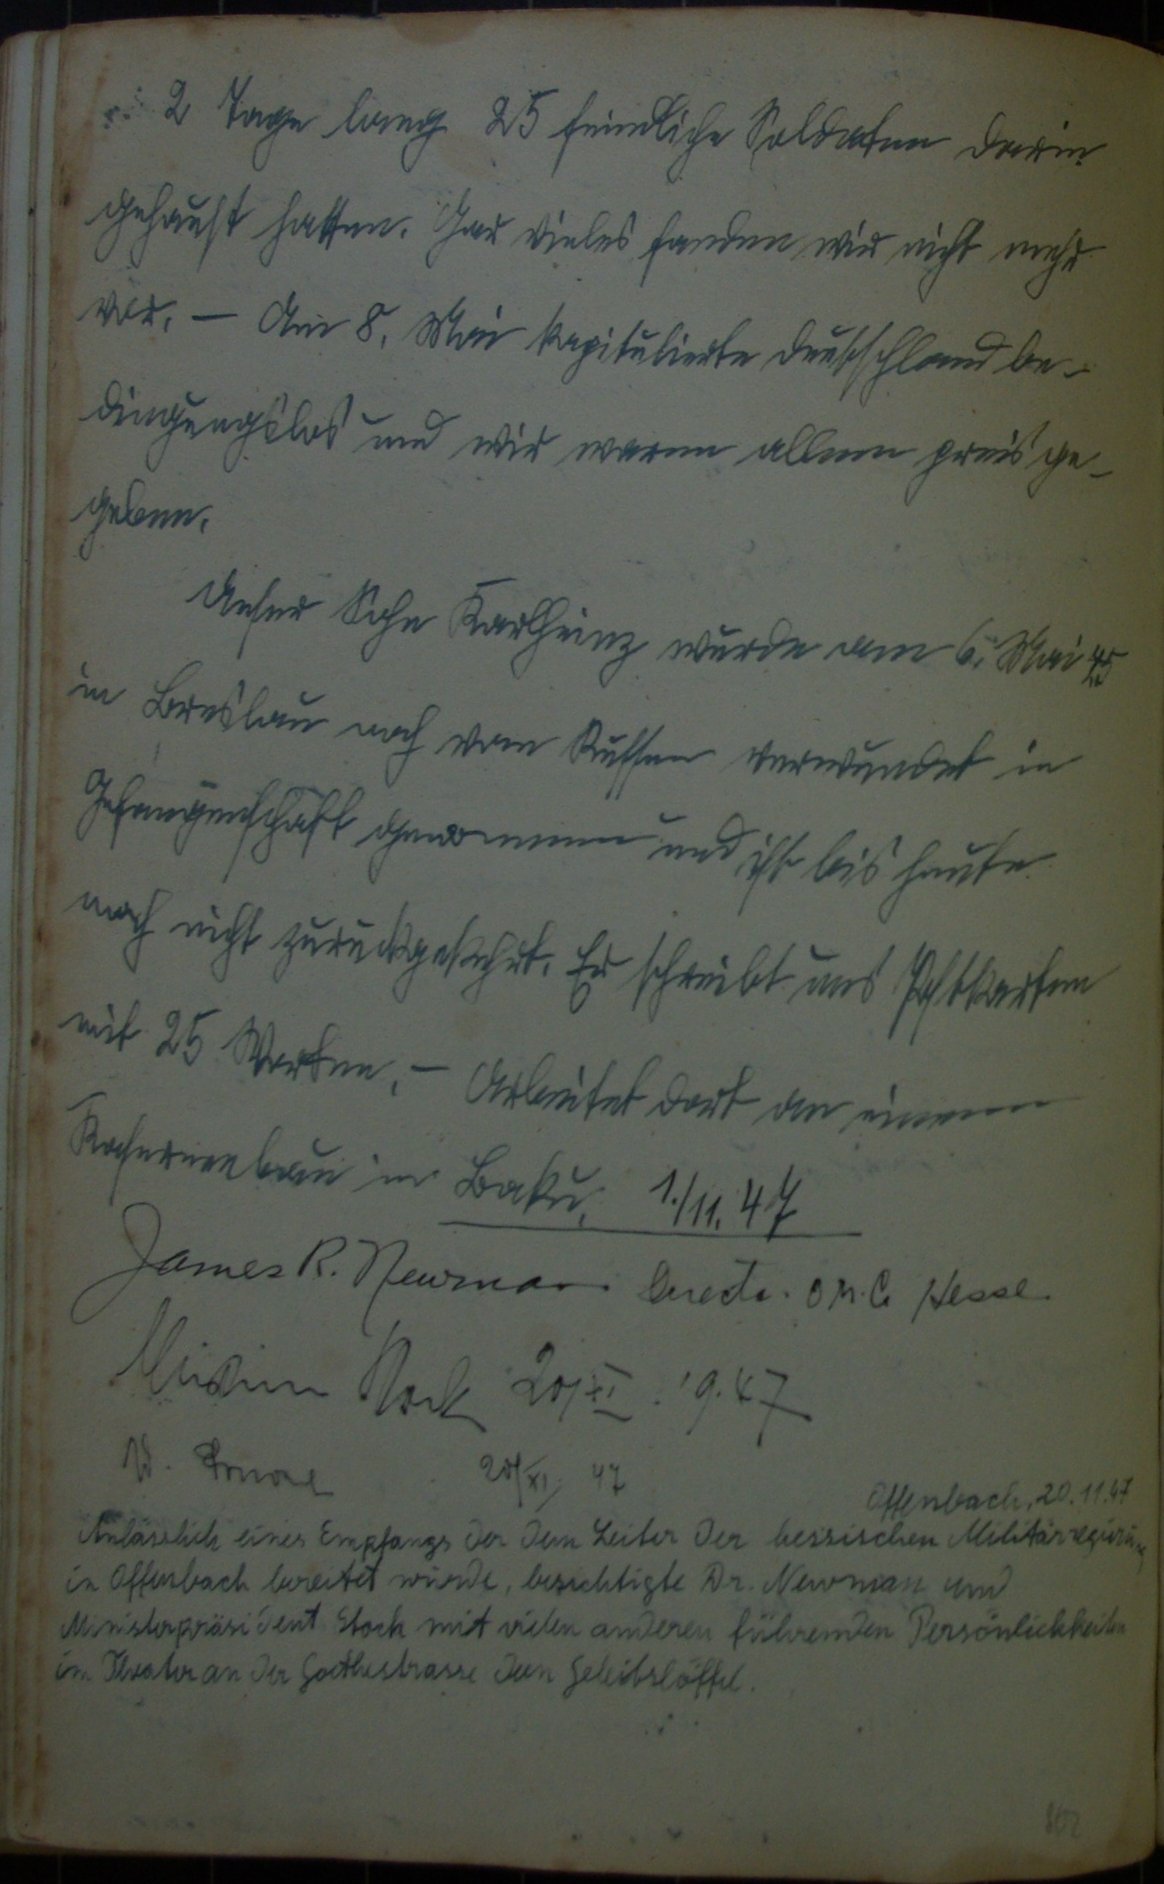 2 Tage lang 25 feindliche Soldaten darin
gehaust hatten. Gar vieles fanden wir nicht mehr
vor. — Am 8. Mai kapitulierte Deutschland be-
dingungslos und wir waren allem preisge-
geben.
Unser Sohn Karlheinz wurde am 6. Mai 45
in Breslau noch vom Russen verwundet in
Gefangenschaft genommen und ist bis heute
noch nicht zurückgekehrt. Er schreibt uns Postkarten
mit 25 Worten. — Arbeitet dort an einem
Kasernenbau in Baku. 1./11.47
James R. Newman Director. O.M.G. Hesse.
Stock 20/XI. 1947
20/XI. 47
Offenbach, 20.11.47
Anlässlich eines Empfangs der dem Leiter der hessischen Militärregierung
in Offenbach bereitet wurde, besichtigte Dr. Newman und
Ministerpräsident Stock mit vielen anderen führenden Persönlichkeiten
im Theater an der Goethestrasse den Geleitslöffel.